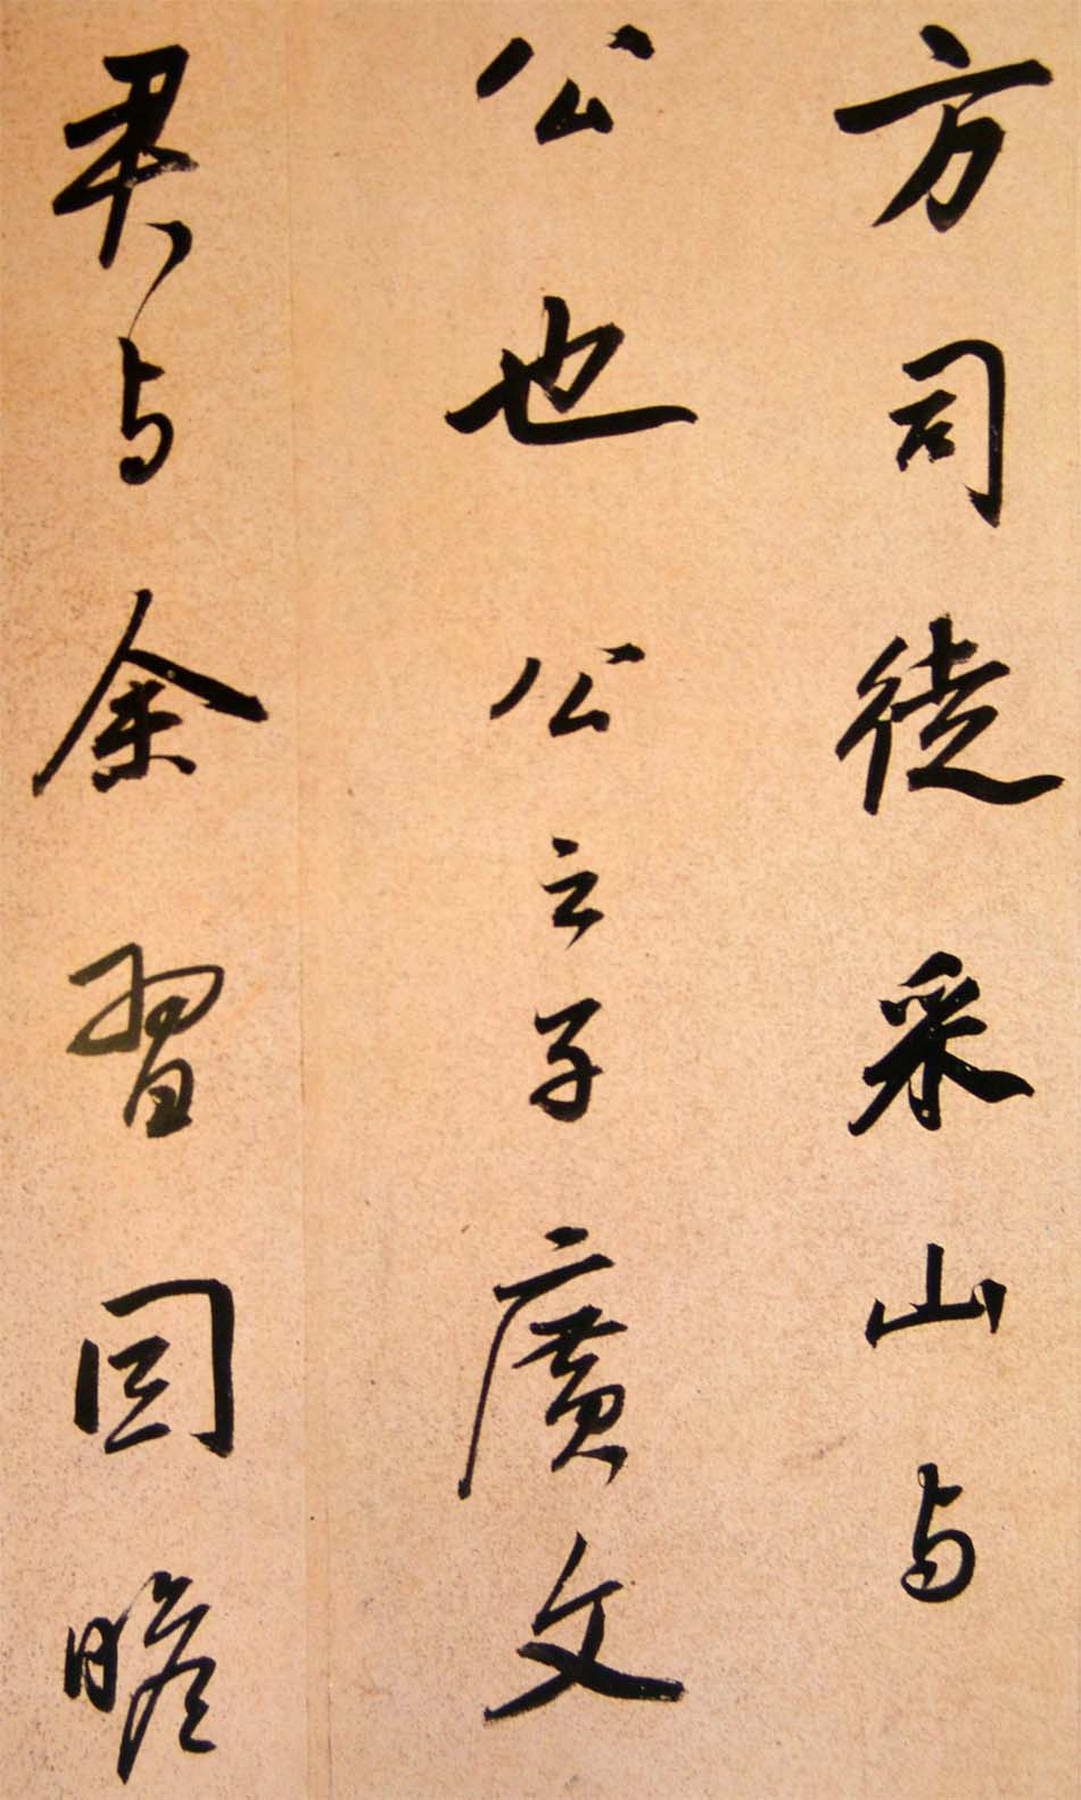 方司徒采山与
公也公之子廣文
君与余習因瞻